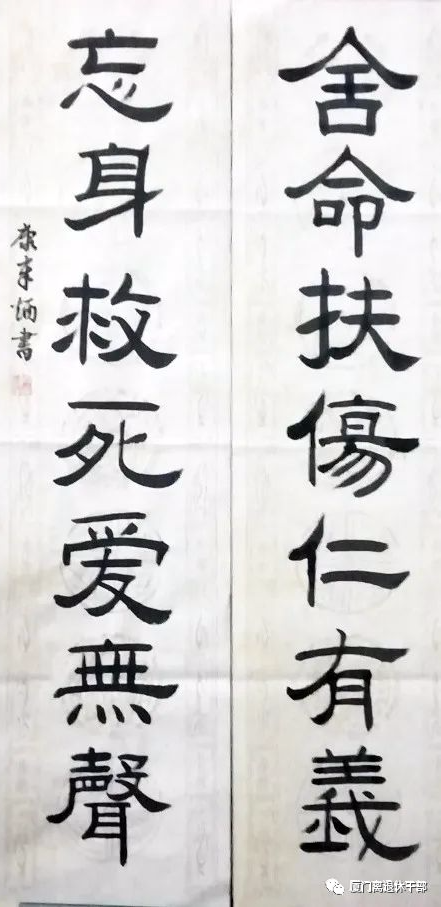 舍命扶傷仁有義
忘身救死爱無聲
康来炳書
厦门离退休干部